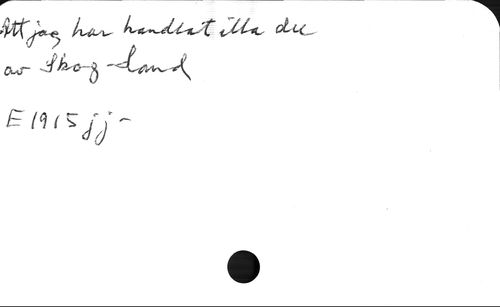 Att jag har handlat illa du
av Skog-Sand
E 1915 jj -